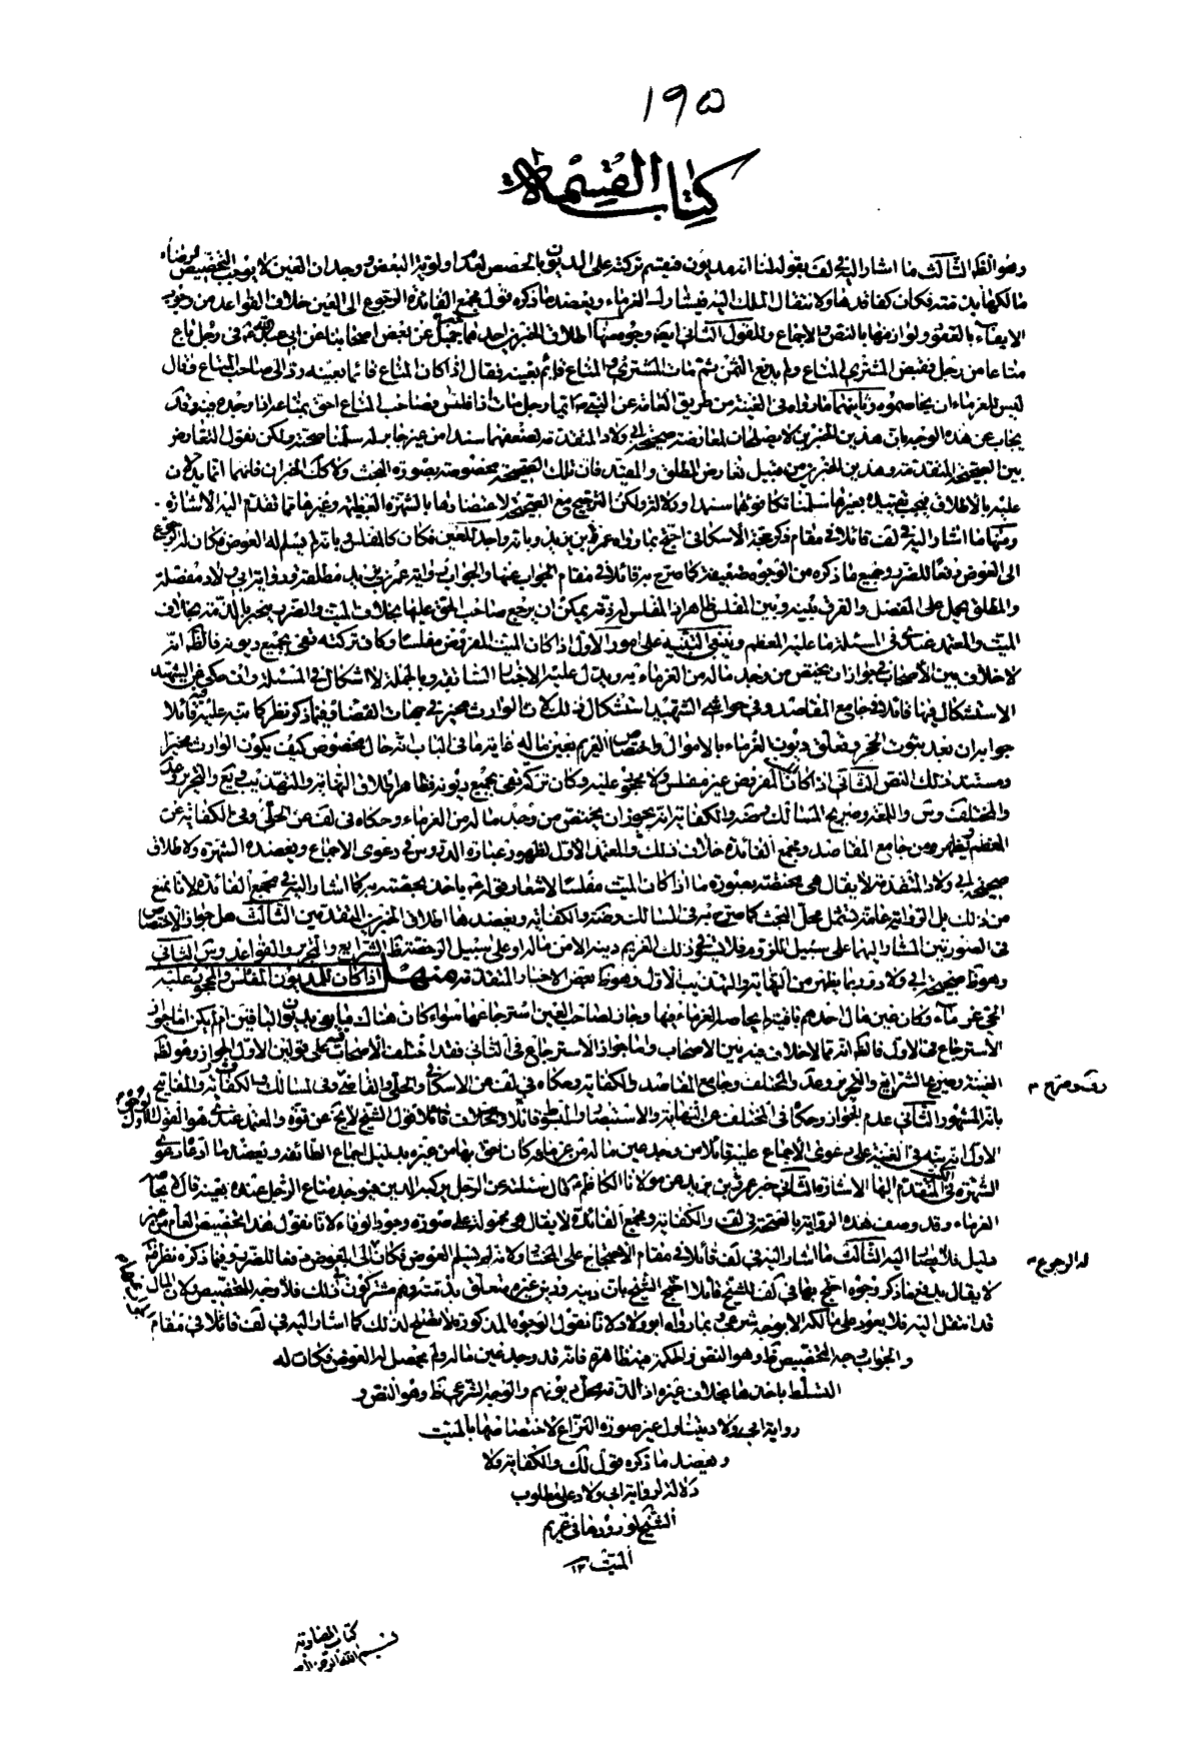 ١٩٥
كتاب القسمة
وهو الظ الثالث ما اشار اليه في لف بقوله لنا انه مديون فيقسم تركته على الديون بالحصص لعدم اولوية البعض ووجدان العين لا يوجب التخصيص
مالكها بذمته فكان كفاقدها ولانتقال الملك اليه فيشارك الغرماء ويعضد ما ذكره قول مجمع الفائدة الرجوع الى العين خلاف القواعد من وجوب
الايفاء بالعقود ولوازمها بالنص والاجماع وللقول الثاني ايضا وجوه منها اطلاق الخبرين احدهما جميل عن بعض اصحابنا عن ابي عبد الله في رجل باع
متاعا من رجل فقبض المشتري المتاع ولم يدفع الثمن ثم مات المشتري والمتاع قائم بعينه فقال اذا كان المتاع قائما بعينه رد الى صاحب المتاع وقال
ليس للغرماء ان يخاصموه وثانيهما ما رواه في الغنية من طريق العامة عن النبي ص ايما رجل مات او افلس فصاحب المتاع احق بمتاعه اذا وجده بعينه وقد
يجاب عن هذه الوجه بان هذين الخبرين لا يصلحان لمعارضة صحيحة ابي ولاد المتقدمة لضعفهما سندا من غير جابر له سلمنا صحته ولكن نقول التعارض
بين الصحيحة المتقدمة وهذين الخبرين من قبيل تعارض المطلق والمقيد فان تلك الصحيحة مخصوصة بصورة البحث ولا كك الخبران فانهما انما يدلان
عليه بالاطلاق فيجب تقييده بغيرها سلمنا تكافؤهما سندا ودلالة ولكن الترجيح مع الصحيحة لاعتضادها بالشهرة العظيمة وغيرها مما تقدم اليه الاشارة
ومنها ما اشار اليه في لف قائلا في مقام ذكر حجة الاسكافي احتج بما رواه عمر بن يزيد وبانه واجد للعين فكان كالمفلس وبانه لم يسلم له العوض فكان له الرجوع
الى العوض دفعا للضرر وجميع ما ذكره من الوجوه ضعيفة كما صرح به قائلا في مقام الجواب عنها والجواب رواية عمر بن يزيد مطلقة ورواية ابي ولاد مفصلة
والمطلق يحمل على المفصل والفرق بينه وبين المفلس ظاهر اذ المفلس له ذمة يمكن ان يرجع صاحب الحق عليها بخلاف الميت والضرر ينجبر بالذمة بخلاف
الميت والمعتمد عندي في المسئلة ما عليه المعظم وينبغي التنبيه على امور الاول اذا كان الميت المفروض مفلسا وكان تركته تفي بجميع ديونه فالظ انه
لا خلاف بين الاصحاب في جواز ان يختص من وجد ماله من الغرماء به ويدل عليه الاخبار السابقة وبالجملة لا اشكال في المسئلة وان حكى عن الشهيد
الاستشكال فيها قائلا في جامع المقاصد وفي حواشي الشهيد استشكال ذلك لان الوارث مخير في جهات القضاء فيما ذكر نظر كما نبه عليه فيه قائلا
جوابه ان بعد ثبوت الحجر وتعلق ديون الغرماء بالاموال واختصاص الغريم بعين ماله غاية ما في الباب انه حال مخصوص كيف يكون الوارث مخيرا
ومستند ذلك النص الثاني اذا كان المفروض غير مفلس ولا محجور عليه وكان تركته تفي بجميع ديونه فظاهر اطلاق النهاية والتهذيب ويع والتحرير وعد
والمختلف وس واللمعة وصريح المسالك وضة والكفاية انه يجوز ان يختص من وجد ماله من الغرماء وحكاه في لف عن الحلي وفي الكفاية عن
المعظم ويظهر من جامع المقاصد ومجمع الفائدة خلاف ذلك والمعتمد الاول لظهور عبارة الدروس في دعوى الاجماع ويعضده الشهرة ولاطلاق
صحيحة ابي ولاد المتقدمة لا يقال هي مختصة بصورة ما اذا كان الميت مفلسا لاشعار قوله ياخذ بحصته به كما اشار اليه في مجمع الفائدة لانا نمنع
من ذلك بل الرواية عامة تشمل محل البحث كما صرح به في المسالك وضة والكفاية ويعضدها اطلاق الخبرين المتقدمين الثالث هل جواز الاختصاص
في الصورتين المشار اليهما على سبيل اللزوم فلا يجوز ذلك الغريم دينه الا من ماله او على سبيل الرخصة ظ الشرايع والتحرير والقواعد وس الثاني
وهو ظ صحيحة ابي ولاد وربما يظهر من النهاية والتهذيب الاول وهو ظ بعض الاخبار المتقدمة منها اذا كان للمديون المفلس والمحجور عليه
الحي غرماء وكان عين مال احدهم باقية لم يحاصه الغرماء فيها وجاز لصاحب العين استرجاعها سواء كان هناك ما يفي بديون الباقين ام لم يكن اما جواز
الاسترجاع في الاول فالظ انه مما لا خلاف فيه بين الاصحاب واما جواز الاسترجاع في الثاني فقد اختلف الاصحاب فيه على قولين الاول الجواز وهو لظ
الغنية وصريح الشرايع والتحرير وعد والمختلف وجامع المقاصد والكفاية وحكاه في لف عن الاسكافي والحلي والقاضي وفي المسالك والكفاية والمفاتيح
بانه المشهور الثاني عدم الجواز وحكاه في المختلف عن النهاية والاستبصار والمبسوط قائلا والخلاف قائلا قول الشيخ لا يخ عن قوة والمعتمد عندي هو القول الاول لوجوه
الاول انه نبه في الغنية على دعوى الاجماع عليه قائلا من وجد عين ماله من غرمائه كان احق بها من غيره بدليل اجماع الطائفة ويعضده ما ادعاه في
الشهرة المتقدم اليها الاشارة الثاني خبر عمر بن يزيد عن مولانا الكاظم ع قال سئلته عن الرجل يركبه الدين فيوجد متاع الرجل عنده بعينه قال لا يحاصه
الغرماء وقد وصف هذه الرواية بالصحة في لف والكفاية ومجمع الفائدة لا يقال هي محمولة على صورة وجود الوفاء لانا نقول هذا تخصيص للعام من غير
دليل فلا يصار اليه الثالث ما اشار اليه في لف قائلا في مقام الاحتجاج على المختار ولانه لم يسلم العوض فكان الى المعوض دفعا للضرر وفيما ذكره نظر فت
لا يقال يدفع ما ذكر وجوه احتج بها في لف للشيخ قائلا احتج الشيخ بان دينه ودين غيره متعلق بذمته وهم مشتركون في ذلك فلا وجه للتخصيص ولان المال
قد انتقل اليه فلا يعود على مالكه الا بوجه شرعي وبما رواه ابو ولاد لانا نقول الوجوه المذكورة لا تصلح لذلك كما اشار اليه في لف قائلا في مقام
والجواب وجه التخصيص ظ وهو النص والحكمة منه ظاهرة فانه قد وجد عين ماله ولم يحصل له العوض فكان له
التسلط باخذها بخلاف غيره اذ الذمة محل ديونهم والوجه الشرعي ظ وهو النص و
رواية ابي ولاد يتناول غير صورة النزاع لاختصاصها بالميت
ويعضد ما ذكره قول لك والكفاية ولا
دلالة لرواية ابي ولاد على مطلوب
الشيخ لورودها في غريم
الميت ١٢
له الرجوع
كتاب المضاربة
بسم الله الرحمن الرحيم